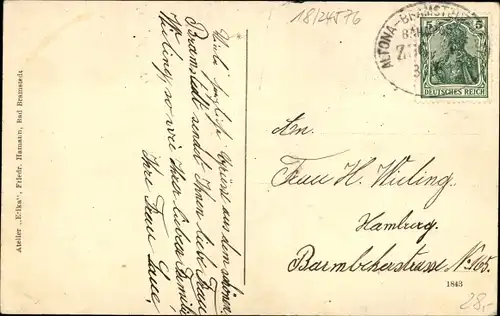 18/24576
ALTONA-BRAMSTEDT
BAHNPOST
5 5
DEUTSCHES REICH
Viele herzliche Grüße aus dem schönen
Bramstedt sendet Ihnen liebe Frau
Wieling, so wie Ihrer lieben Familie
Ihre Frau
Atelier „Edka", Friedr. Hamann, Bad Bramstedt
An.
Frau H. Wieling.
Hamburg.
Barmbekerstrasse No 165.
1843
28,-